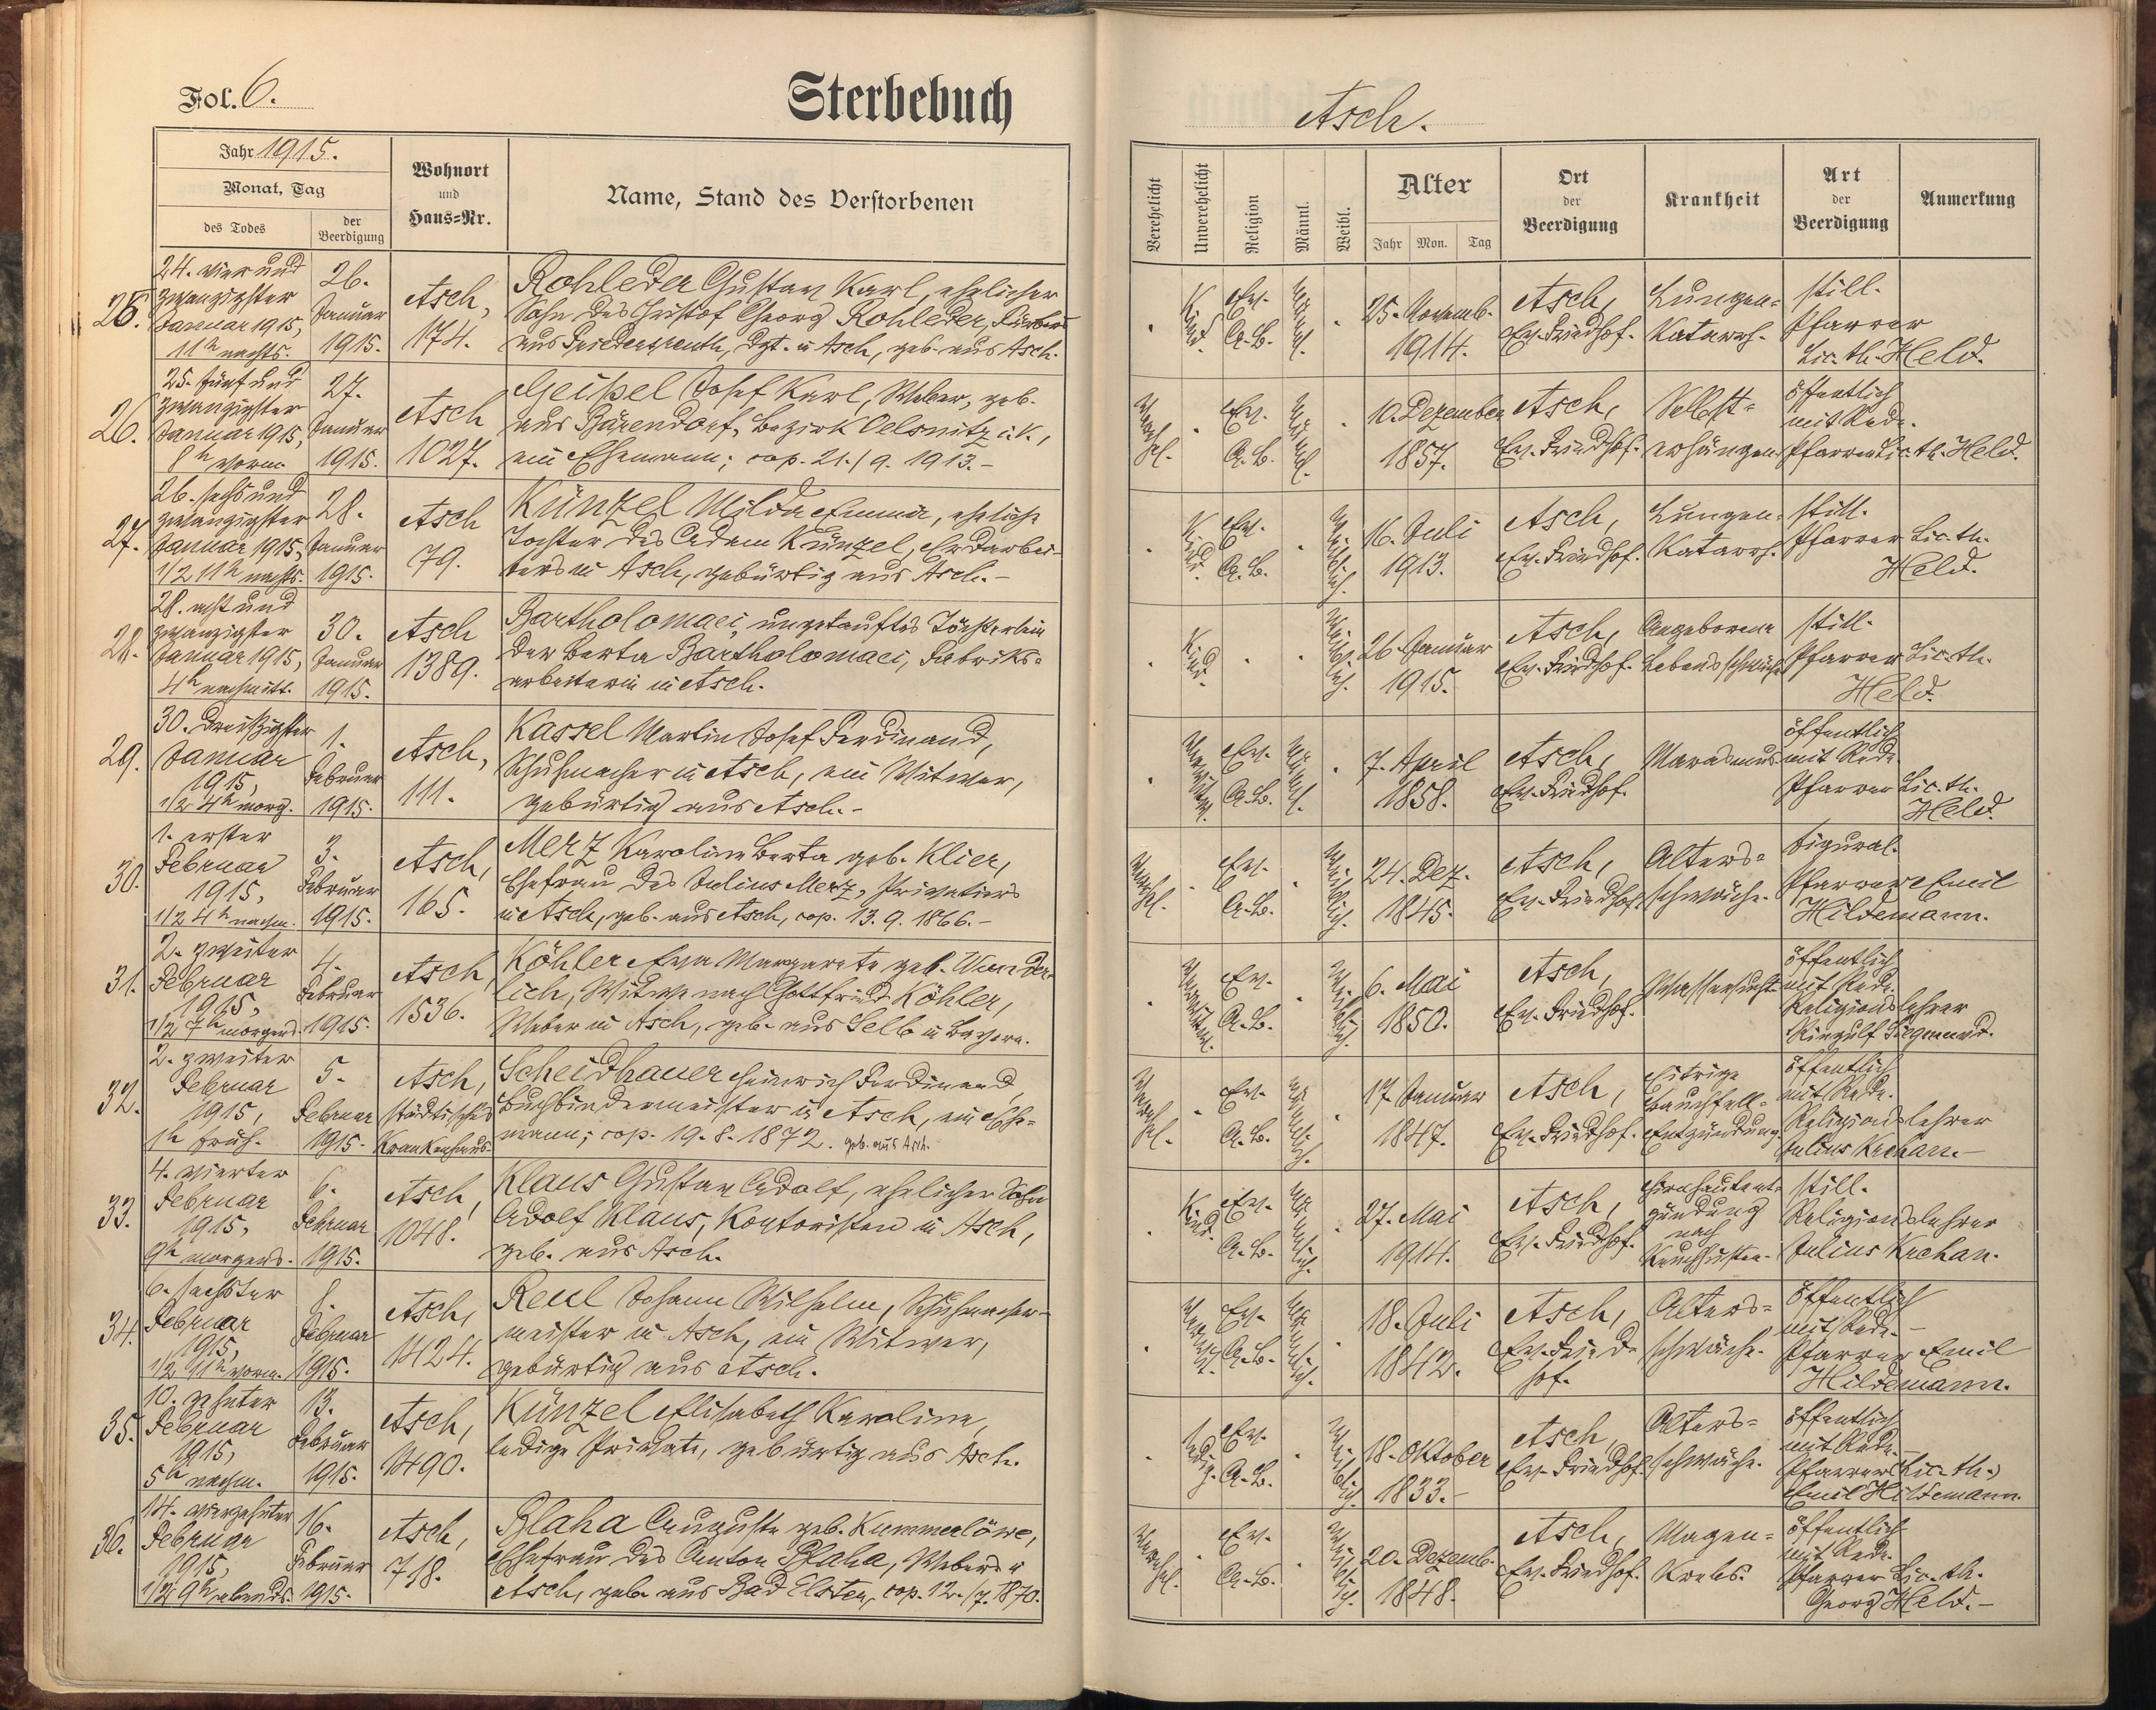 Fol. 6.
Sterbebuch
Jahr 1915.
Monat, Tag
des Todes
der
Beerdigung
Wohnort
und
Haus-Nr.
Name, Stand des Verstorbenen
25.
24. vierund
zwanzigster
Januar 1915,
11h nachts.
26.
Januar
1915.
Asch,
174.
Rohleder Gustav Karl, ehelicher
Sohn des Christof Georg Rohleder, Färbers
aus Friedersreuth, Dzt. in Asch, geb. aus Asch.
26.
25. fünfund
zwanzigster
Januar 1915,
8h vorm.
27.
Januar
1915.
Asch
1027.
Geipel Josef Karl, Weber, geb.
aus Bärendorf, Bezirk Oelsnitz i. V.,
ein Ehemann; cop. 21./9. 1913.-
27.
26. sechsund
zwanzigster
Januar 1915,
1/2 11h nachts.
28.
Januar
1915.
Asch
79.
Künzel Milda Emma, eheliche
Tochter des Adam Künzel, Erdarbei-
ters in Asch, gebürtig aus Asch.-
28.
28. achtund
zwanzigster
Januar 1915,
4h nachmitt.
30.
Januar
1915.
Asch
1389.
Bartholomaei, ungetauftes Töchterlein
der Berta Bartholomaei, Fabriks-
arbeiterin in Asch.
29.
30. dreißigster
Januar
1915,
1/2 4h morg.
1.
Februar
1915.
Asch,
111.
Kassel Martin Josef Ferdinand,
Schuhmacher in Asch, ein Witwer,
gebürtig aus Asch.-
30.
1. erster
Februar
1915,
1/2 4h nachm.
3.
Februar
1915.
Asch,
165.
Merz Karoline Berta geb. Klier,
Ehefrau des Julius Merz, Privatiers
in Asch, geb. aus Asch, cop. 13. 9. 1866.-
31.
2. zweiter
Februar
1915,
1/2 7h morgens.
4.
Februar
1915.
Asch,
1536.
Köhler Eva Margarete geb. Wunder-
lich, Witwe nach Gottfried Köhler,
Weber in Asch, geb. aus Selb in Bayern.
32.
2. zweiter
Februar
1915,
1h früh.
5.
Februar
1915.
Asch,
städtisches
Krankenhaus.
Scheidhauer Heinrich Ferdinand,
Buchbindermeister in Asch, ein Ehe-
mann; cop. 19. 8. 1872. geb. aus Asch.
33.
4. vierter
Februar
1915,
9h morgens.
6.
Februar
1915.
Asch,
1048.
Klaus Gustav Adolf, ehelicher Sohn
Adolf Klaus, Kontoristen in Asch,
geb. aus Asch.
34.
6. sechster
Februar
1915,
1/2 11h vorm.
8.
Februar
1915.
Asch,
1424.
Reul Johann Wilhelm, Schuhmacher-
meister in Asch, ein Witwer,
gebürtig aus Asch.
35.
10. zehnter
Februar
1915,
5h nachm.
13.
Februar
1915.
Asch,
1490.
Künzel Elisabeth Karoline,
ledige Private, gebürtig aus Asch.
36.
14. vierzehnter
Februar
1915,
1/2 9h abends.
16.
Februar
1915.
Asch,
718.
Blaha Auguste geb. Kummerlöwe,
Ehefrau des Anton Blaha, Webers in
Asch, geb. aus Bad Elster, cop. 12./7. 1870.
Asch.
Verehelicht
Unverehelicht
Religion
Männl.
Weibl.
Alter
Jahr Mon. Tag
Ort
der
Beerdigung
Krankheit
Art
der
Beerdigung
Anmerkung
Kind.
Ev.
A. B.
Männl.
25. Novemb.
1914.
Asch,
Ev. Friedhof.
Lungen-
Katarrh.
still.
Pfarrer
Lic. th. Held.
Verehel.
Ev.
A. B.
Männl.
10. Dezember
1857.
Asch,
Ev. Friedhof.
Selbst-
erhängen
öffentlich
mit Rede.
Pfarrer Lic. th. Held.
Kind.
Ev.
A. B.
Weiblich.
16. Juli
1913.
Asch,
Ev. Friedhof.
Lungen-
Katarrh.
still.
Pfarrer Lic. th.
Held.
Kind.
Weiblich.
26. Januar
1915.
Asch,
Ev. Friedhof.
Angeborene
Lebensschwäche
still.
Pfarrer Lic. th.
Held.
Verwitw.
Ev.
A. B.
Männl.
7. April
1858.
Asch,
Ev. Friedhof.
Marasmus
öffentlich
mit Rede.
Pfarrer Lic. th.
Held.
Verehel.
Ev.
A. B.
Weiblich.
24. Dez.
1845.
Asch,
Ev. Friedhof.
Alters-
schwäche.
Figural.
Pfarrer Emil
Hildemann.
Verwitwet.
Ev.
A. B.
Weiblich.
6. Mai
1850.
Asch,
Ev. Friedhof.
Wassersucht
öffentlich
mit Rede.
Religionslehrer
Ringulf Siegmund.
Verehel.
Ev.
A. B.
Männlich.
17. Januar
1847.
Asch,
Ev. Friedhof.
Eitrige
Bauchfell-
Entzündung.
öffentlich
mit Rede.
Religionslehrer
Julius Krehan.-
Kind.
Ev.
A. B.
Männlich.
27. Mai
1914.
Asch,
Ev. Friedhof.
Hirnhautent-
zündung
nach
Keuchhusten.
still.
Religionslehrer
Julius Krehan.
Verwit.
Ev.
A. B.
Männlich.
18. Juli
1842.
Asch,
Ev. Fried-
hof.
Alters-
schwäche.
öffentlich
mit Rede.-
Pfarrer Emil
Hildemann.
ledig.
Ev.
A. B.
Weiblich.
18. Oktober
1833.-
Asch,
Ev. Friedhof.
Alters-
schwäche.
öffentlich
mit Rede.-
Pfarrer (Lic. th.)
Emil Hildemann.
Verehel.
Ev.
A. B.
Weiblich.
20. Dezemb.
1848.
Asch,
Ev. Friedhof.
Magen-
Krebs.
öffentlich
mit Rede.
Pfarrer Lic. th.
Georg Held.-